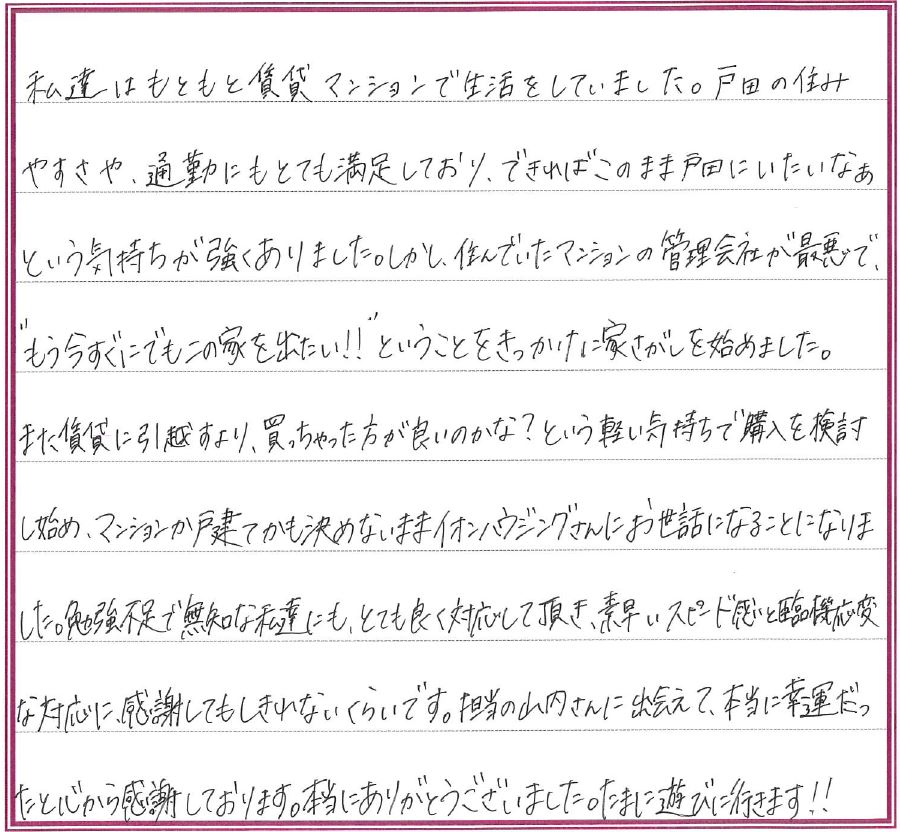 私達はもともと賃貸マンションで生活をしていました。戸田の住み
やすさや、通勤にもとても満足しており、できればこのまま戸田にいたいなぁ
という気持ちが強くありました。しかし、住んでいたマンションの管理会社が最悪で、
"もう今すぐにでもこの家を出たい!!"ということをきっかけに家さがしを始めました。
また賃貸に引越すより、買っちゃった方が良いのかな?という軽い気持ちで購入を検討
し始め、マンションか戸建てかも決めないままイオンハウジングさんにお世話になることになりま
した。勉強不足で無知な私達にも、とても良く対応して頂き、素早いスピード感と臨機応変
な対応に、感謝してもしきれないくらいです。担当の山内さんに出会えて、本当に幸運だっ
たと心から感謝しております。本当にありがとうございました。たまに遊びに行きます!!